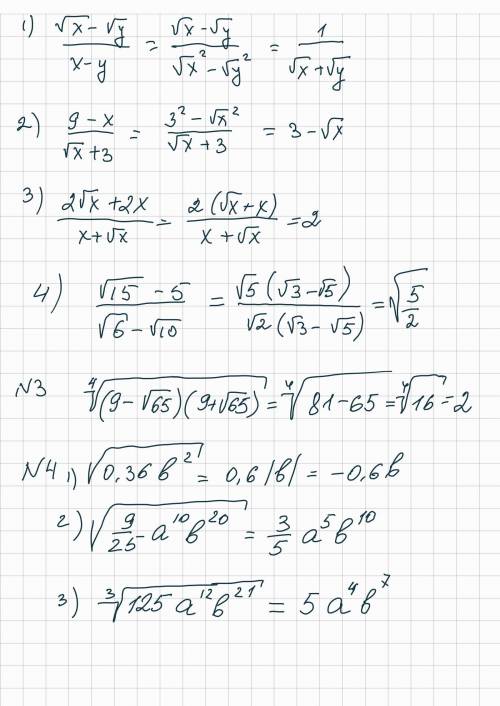 1) (√x - √y)/(x - y) = (√x - √y)/(√x² - √y²) = 1/(√x + √y)
2) (9 - x)/(√x + 3) = (3² - √x²)/(√x + 3) = 3 - √x
3) (2√x + 2x)/(x + √x) = (2(√x + x))/(x + √x) = 2
4) (√15 - 5)/(√6 - √10) = (√5(√3 - √5))/(√2(√3 - √5)) = √(5/2)
N3 ⁴√((9 - √65)(9 + √65)) = ⁴√(81 - 65) = ⁴√16 = 2
N4 1) √(0,36 b²) = 0,6 |b| = -0,6b
2) √(9/25 - a¹⁰b²⁰) = 3/5 a⁵b¹⁰
3) ³√(125 a¹²b²¹) = 5 a⁴b⁷